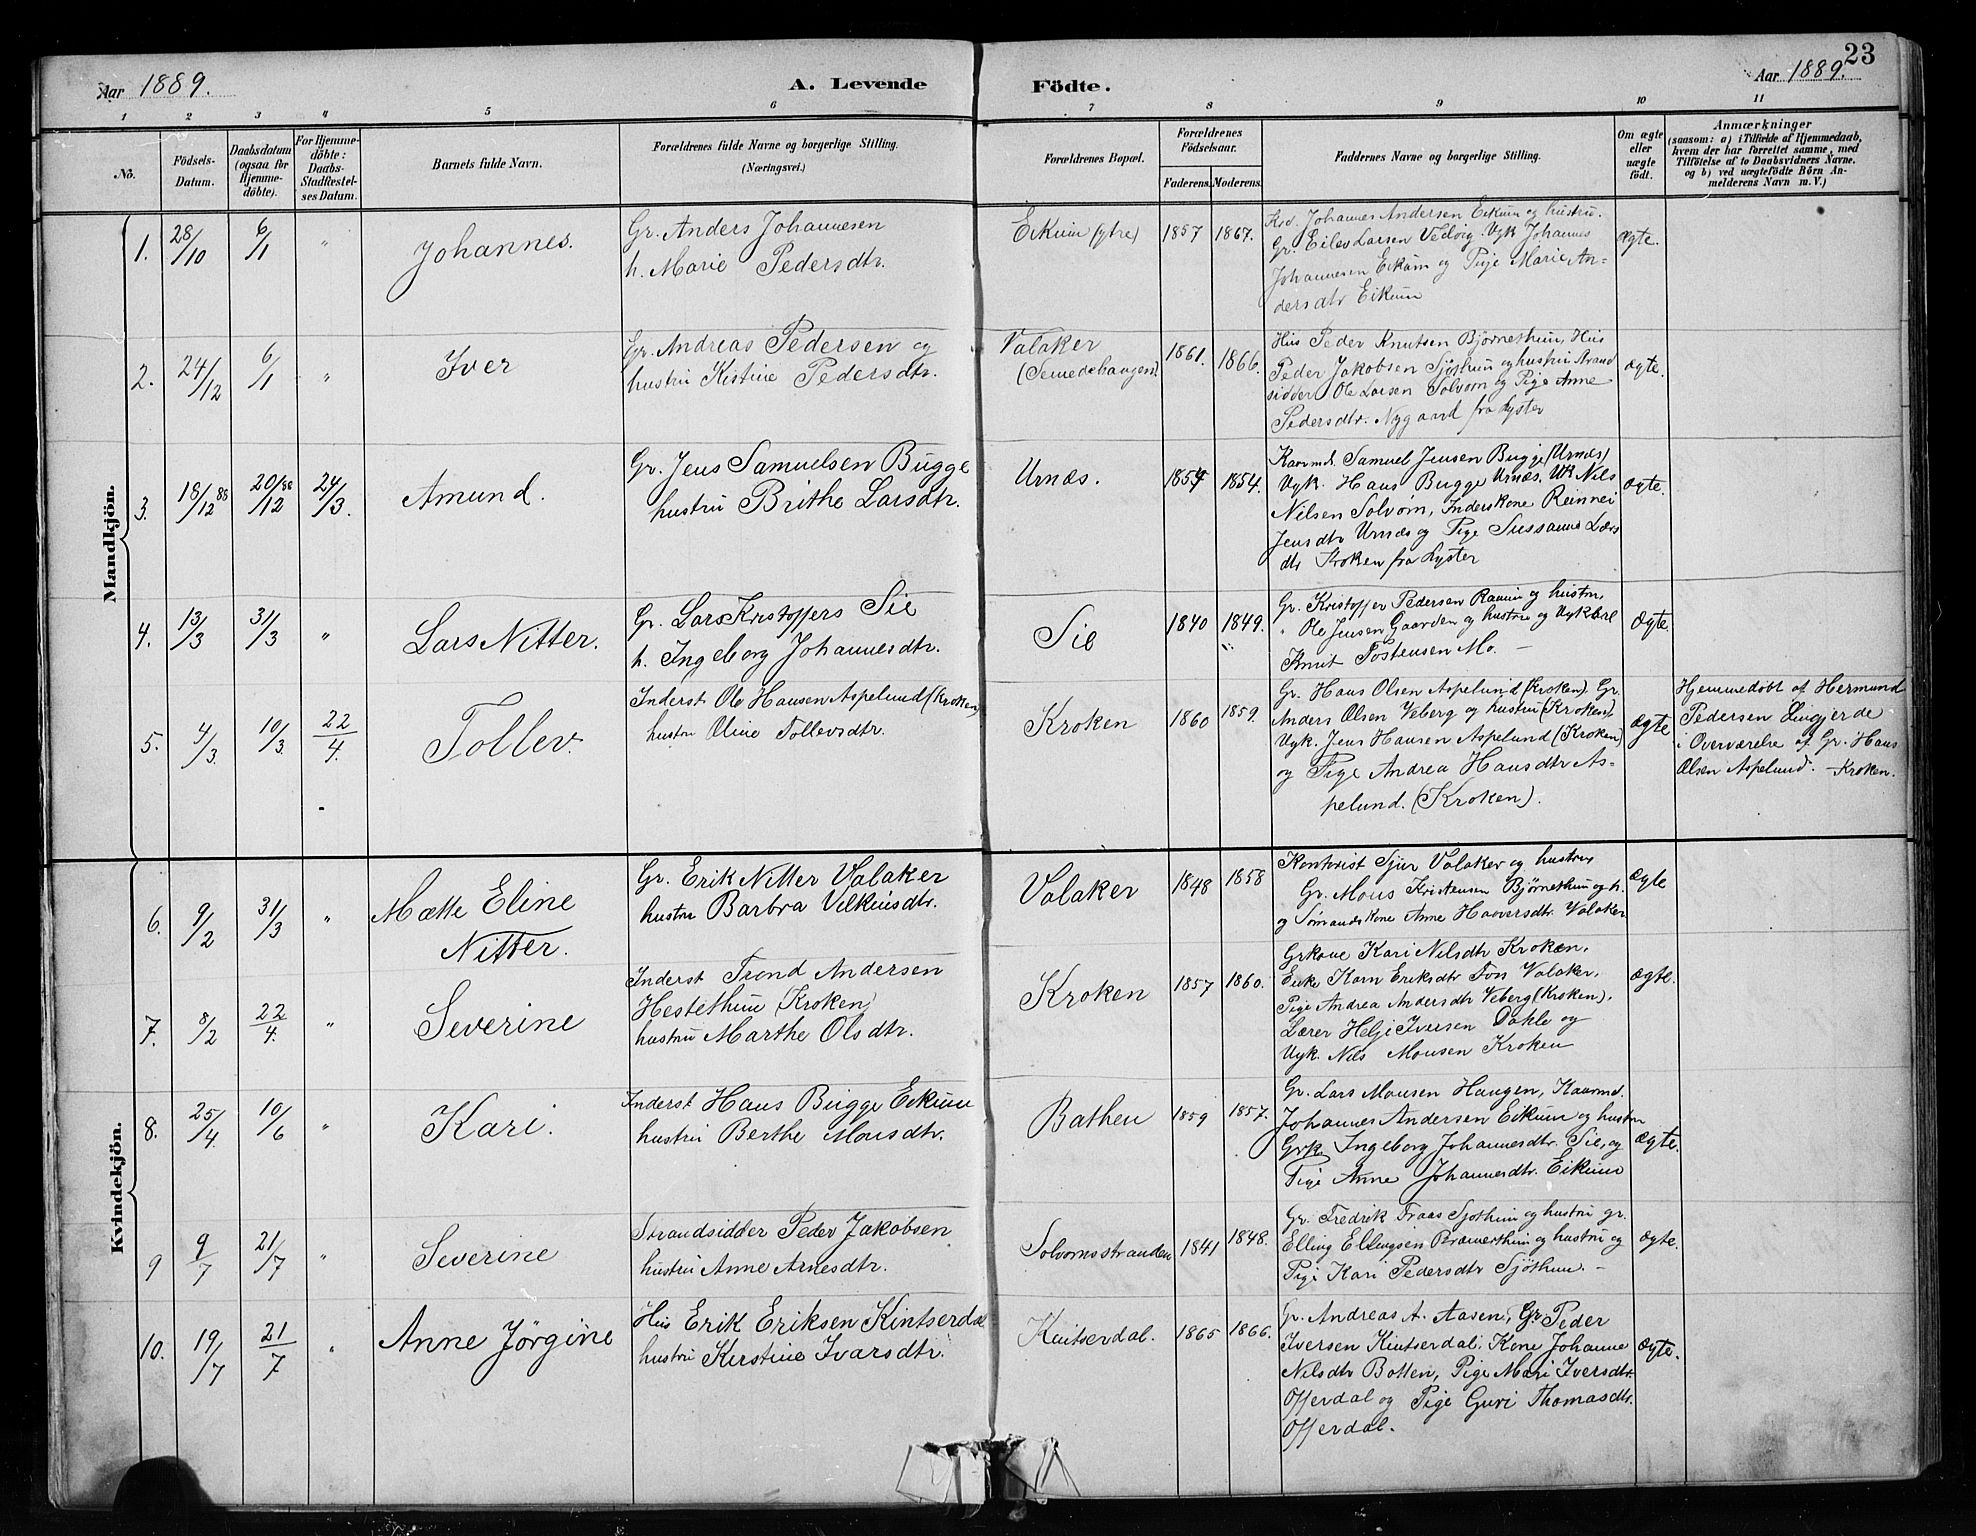 23
Aar 1889.
A. Levende Födte.
Aar 1889.
1 2 3 4 5 6 7 8 9 10 11
No.
Födsels-
Datum.
Daabsdatum
(ogsaa for
Hjemme-
döbte).
For Hjemme-
döbte:
Daabs-
Stadfæstel-
ses Datum.
Barnets fulde Navn.
Forældrenes fulde Navne og borgerlige Stilling.
(Næringsvei.)
Forældrenes Bopæl.
Forældrenes
Födselsaar.
Faderens. Moderens.
Faddernes Navne og borgerlige Stilling.
Om ægte
eller
uægte
födt.
Anmærkninger
(saasom: a) i Tilfælde af Hjemmedaab,
hvem der har forrettet samme, med
Tilföielse af to Daabsvidners Navne.
og b) ved uægtefödte Börn An-
melderens Navn m. V.)
Mandkjön.
1. 28/10 6/1 " Johannes.
Gr. Anders Johannesen
h. Marie Pedersdtr.
Eikum (ytre) 1857 1867.
Johannes Andersen Eikum og hustru.
Gr. Eilev Larsen Vedvig. Ugk Johannes
Johannesen Eikum og Pige Marie An-
dersdtr Eikum
ægte.
2. 24/12 6/1 " Iver
Gr. Andreas Pedersen og
hustru Kistine Pedersdtr.
Valaker
(Semedehaugen). 1861. 1866.
Hus Peder Knutsen Bjørnethun, Hus
Peder Jakobsen Sjøthun og hustru Strand
sidder Ole Larsen Solvorn og Pige Anne
Pedersdtr. Nygaard fra Lyster
ægte.
3. 18/12 88 20/12 88 24/3. Amund.
Gr. Jens Samuelsen Bugge
hustru Brithe Larsdtr.
Urnæs. 1854 1854.
Kaarmd. Samuel Jensen Bugge (Urnæs)
Ugk. Hans Bugge Urnæs. UK Nils
Nilsen Solvorn, Inderskone Reinnei
Jensdtr Urnæs og Pige Sussanne Lars
dtr Kroken fra Lyster
ægte.
4. 13/3 31/3 " Lars Nitter.
Gr. Lars Kristoffers Sie
h. Ingeborg Johannesdtr.
Sie 1840 1849.
Gr. Kristoffer Pedersen Ravun og hustru,
" Ole Jensen Gaarden og hustru og Ugkarl
Knut Tostensen Mo. —
Ægte.
5. 4/3. 10/3 22/4. Tollev.
Inderst Ole Hansen Aspelund (Kroken)
hustru Oline Tollevsdtr.
Kroken 1860 1859.
Gr. Hans Olsen Aspelund (Kroken). Gr.
Anders Olsen Veberg og hustru (Kroken),
Ugk. Jens Hansen Aspelund (Kroken)
og Pige Andrea Hansdtr As-
pelund. (Kroken).
Ægte
Hjemmedøbt af Hermund
Pedersen Lingjerde
i Overværelse af Gr. Hans
Olsen Aspelund. — Kroken.
Kvindekjön.
6. 9/2 31/3 " Mætte Eline
Nitter.
Gr. Erik Nitter Valaker
hustru Barbra Vilkensdtr.
Valaker 1848 1858
Kontorist Sjur Valaker og hustru
Gr. Mons Kristensen Bjørnethun og h.
og Sømandskone Anne Haaversdtr. Valaker
Ægte
7. 8/2 22/4. " Severine
Inderst Trond Andersen
Hestethun (Kroken)
hustru Marthe Olsdtr.
Kroken 1857 1860.
Grkone Kari Nilsdtr Kroken.
Enke Karn Eriksdtr Fos Valaker.
Pige Andrea Andersdtr Veberg (Kroken).
Lærer Helje Iversen Dahle og
Ugk. Nils Monsen Kroken
Ægte.
8. 25/4. 10/6 " Kari.
Inderst Hans Bugge Eikum
hustru Berthe Monsdtr.
Bathen 1859 1857.
Gr. Lars Monsen Haugen, Kaarmd.
Johannes Andersen Eikum og hustru
Grk. Ingeborg Johannesdtr. Sie, og
Pige Anne Johannesdtr. Eikum
Ægte.
9 9/7 21/7 " Severine
Strandsidder Peder Jakobsen
hustru Anne Arnesdtr.
Solvornsstranden 1841 1848.
Gr. Fredrik Fraas Sjøthun og hustru gr.
Elling Ellingsen og hustru og
Pige Kari Pedersdtr Sjøthun. —
Ægte.
10. 19/7 21/7 " Anne Jørgine
Hus Erik Eriksen Kintserdal
hustru Kirstine Ivarsdtr.
Kintserdal. 1865 1866.
Gr. Andreas A. Aasen, Gr. Peder
Iversen Kintserdal. Kone Johanne
Nilsdtr Botten, Pige Mari Iversdtr.
Offerdal og Pige Guri Thomasdtr.
Offerdal.
Ægte.